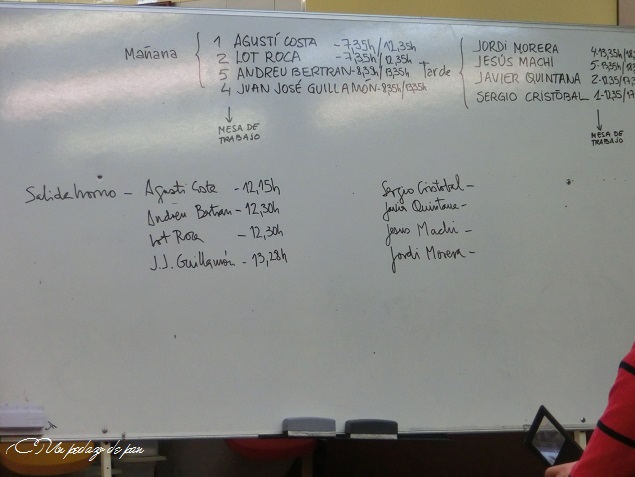 Mañana
1 AGUSTÍ COSTA - 7,35h/12,35h
2 LOT ROCA - 7,35h/12,35h
5 ANDREU BERTRAN - 8,35h/13,35h
4 JUAN JOSÉ GUILLAMÓN - 8,35h/13,35h
MESA DE
TRABAJO
Tarde
JORDI MORERA 4-13,35h/18
JESÚS MACHI 5-13,35h/18,3
JAVIER QUINTANA 2-12,35/17,
SERGIO CRISTÓBAL 1-12,35/17,
MESA DE
TRABAJO
Salida horno - Agustí Costa - 12,15h
Andreu Bertran - 12,30h
Lot Roca - 12,30h
J.J. Guillamón - 13,28h
Sergio Cristobal -
Javier Quintana -
Jesus Machi -
Jordi Morera -
Un pedazo de pan